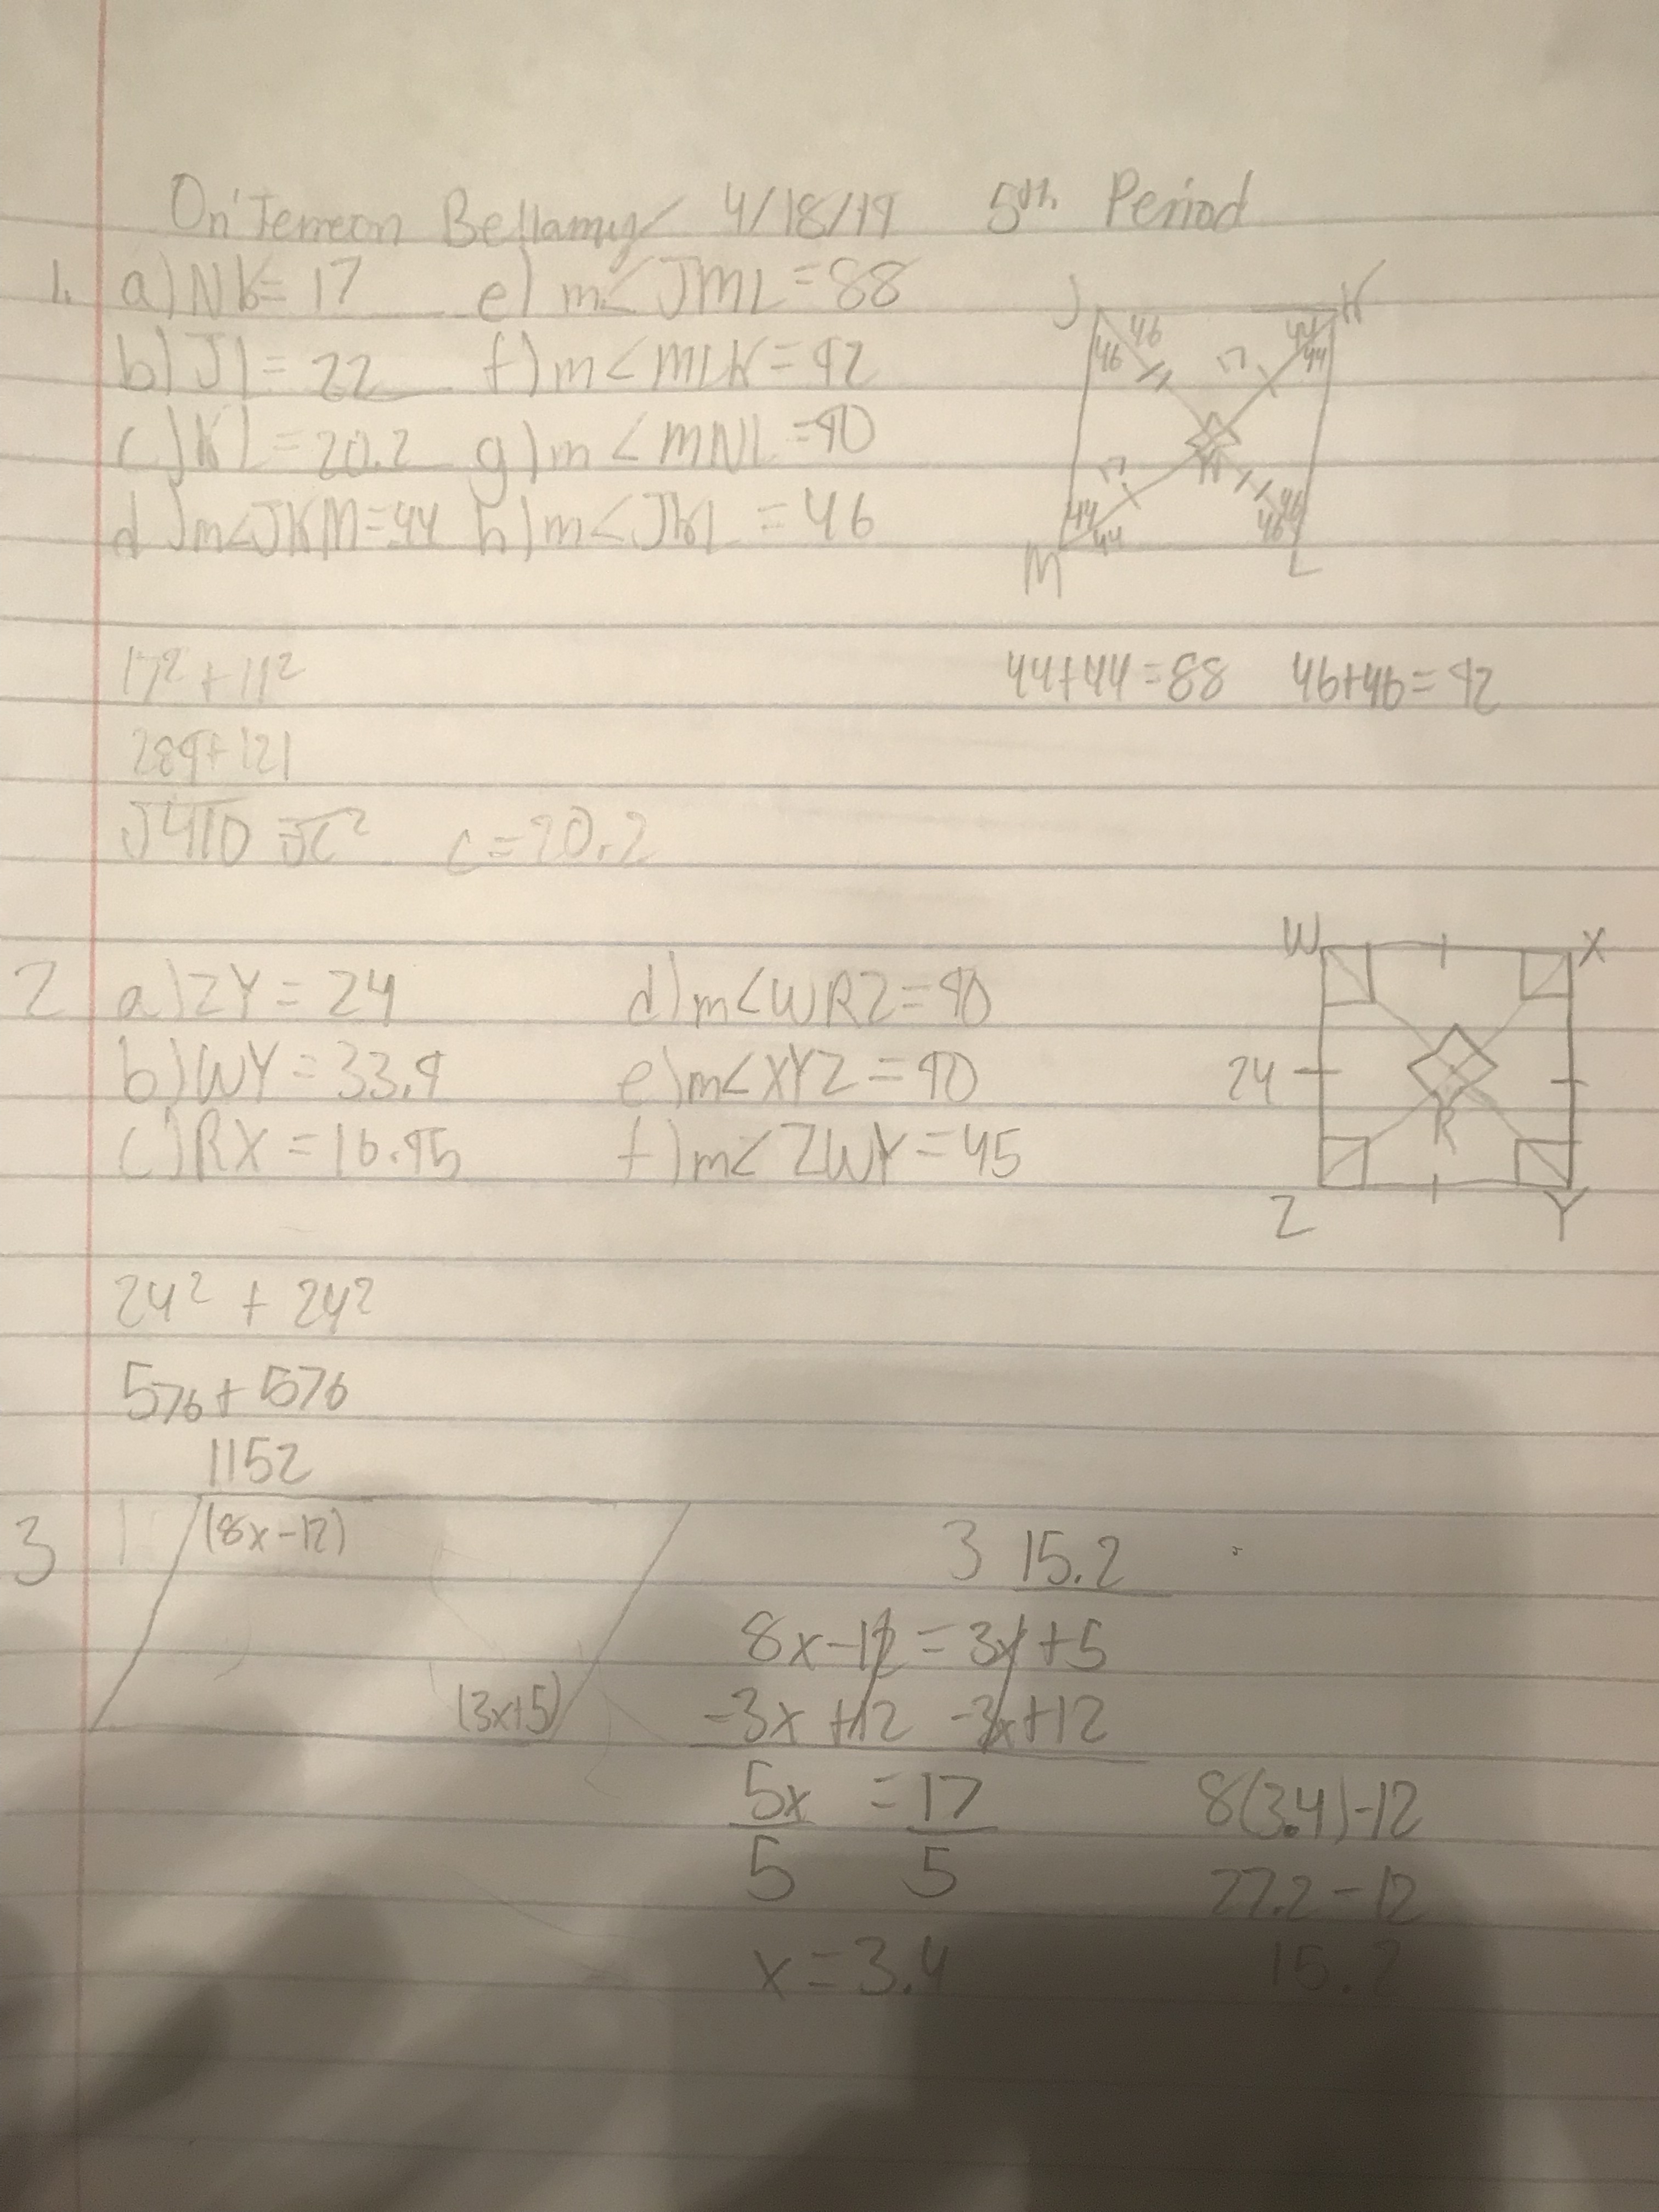 On'Terreon Bellamy 4/18/19 5th Period
1. a) NK = 17 e) m∠JML = 88
b) JL = 22 f) m∠MLK = 92
c) KL = 20.2 g) m∠MNL = 90
d) m∠JKM = 44 h) m∠JKL = 46
J K
46 46 17 44 44
N
17 44 44 46 46
M L
17² + 11² 44+44=88 46+46=92
289+121
√410 = √c² c = 20.2
W X
2 a) ZY = 24 d) m∠WRZ = 90
b) WY = 33.9 e) m∠XYZ = 90
24
c) RX = 16.95 f) m∠ZWY = 45
R
Z Y
24² + 24²
576 + 576
1152
3 (8x-12) 3 15.2
8x-12 = 3x+5
(3x+5) -3x +12 -3x+12
5x = 17 8(3.4)-12
5 5 27.2-12
x = 3.4 15.2